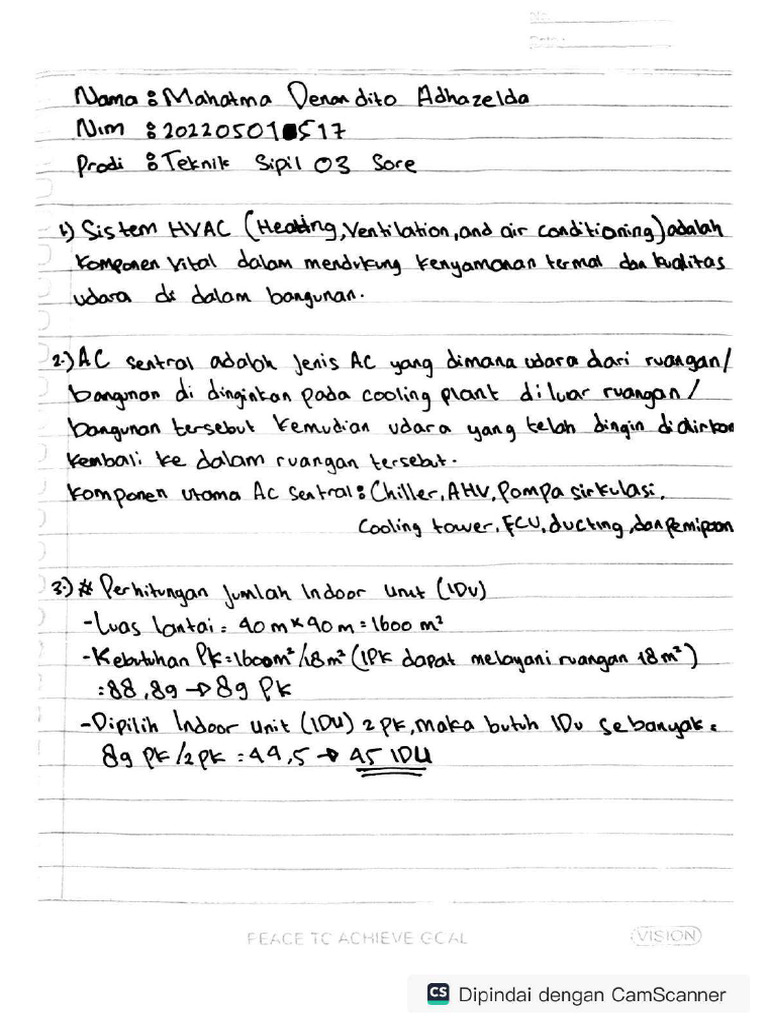 No.
Date:
Nama : Mahatma Denandito Adhazelda
Nim : 20220501517
Prodi : Teknik Sipil 03 Sore
1.) Sistem HVAC (Heating, Ventilation, and air conditioning) adalah
Komponen vital dalam mendukung kenyamanan termal dan kualitas
udara di dalam bangunan.
2.) AC sentral adalah jenis AC yang dimana udara dari ruangan/
bangunan di dinginkan pada cooling plant di luar ruangan/
bangunan tersebut kemudian udara yang telah dingin dialirkan
kembali ke dalam ruangan tersebut.
Komponen utama AC sentral : Chiller, AHU, Pompa sirkulasi,
Cooling tower, FCU, ducting, dan pemipaan
3.) # Perhitungan jumlah Indoor Unit (IDU)
- Luas lantai = 40 m x 40 m = 1600 m²
- Kebutuhan PK = 1600 m²/18 m² (1PK dapat melayani ruangan 18 m²)
= 88,89 → 89 PK
- Dipilih Indoor Unit (IDU) 2 PK, maka butuh IDU sebanyak =
89 PK / 2 PK = 44,5 → 45 IDU
PEACE TO ACHIEVE GOAL
VISION
CS Dipindai dengan CamScanner